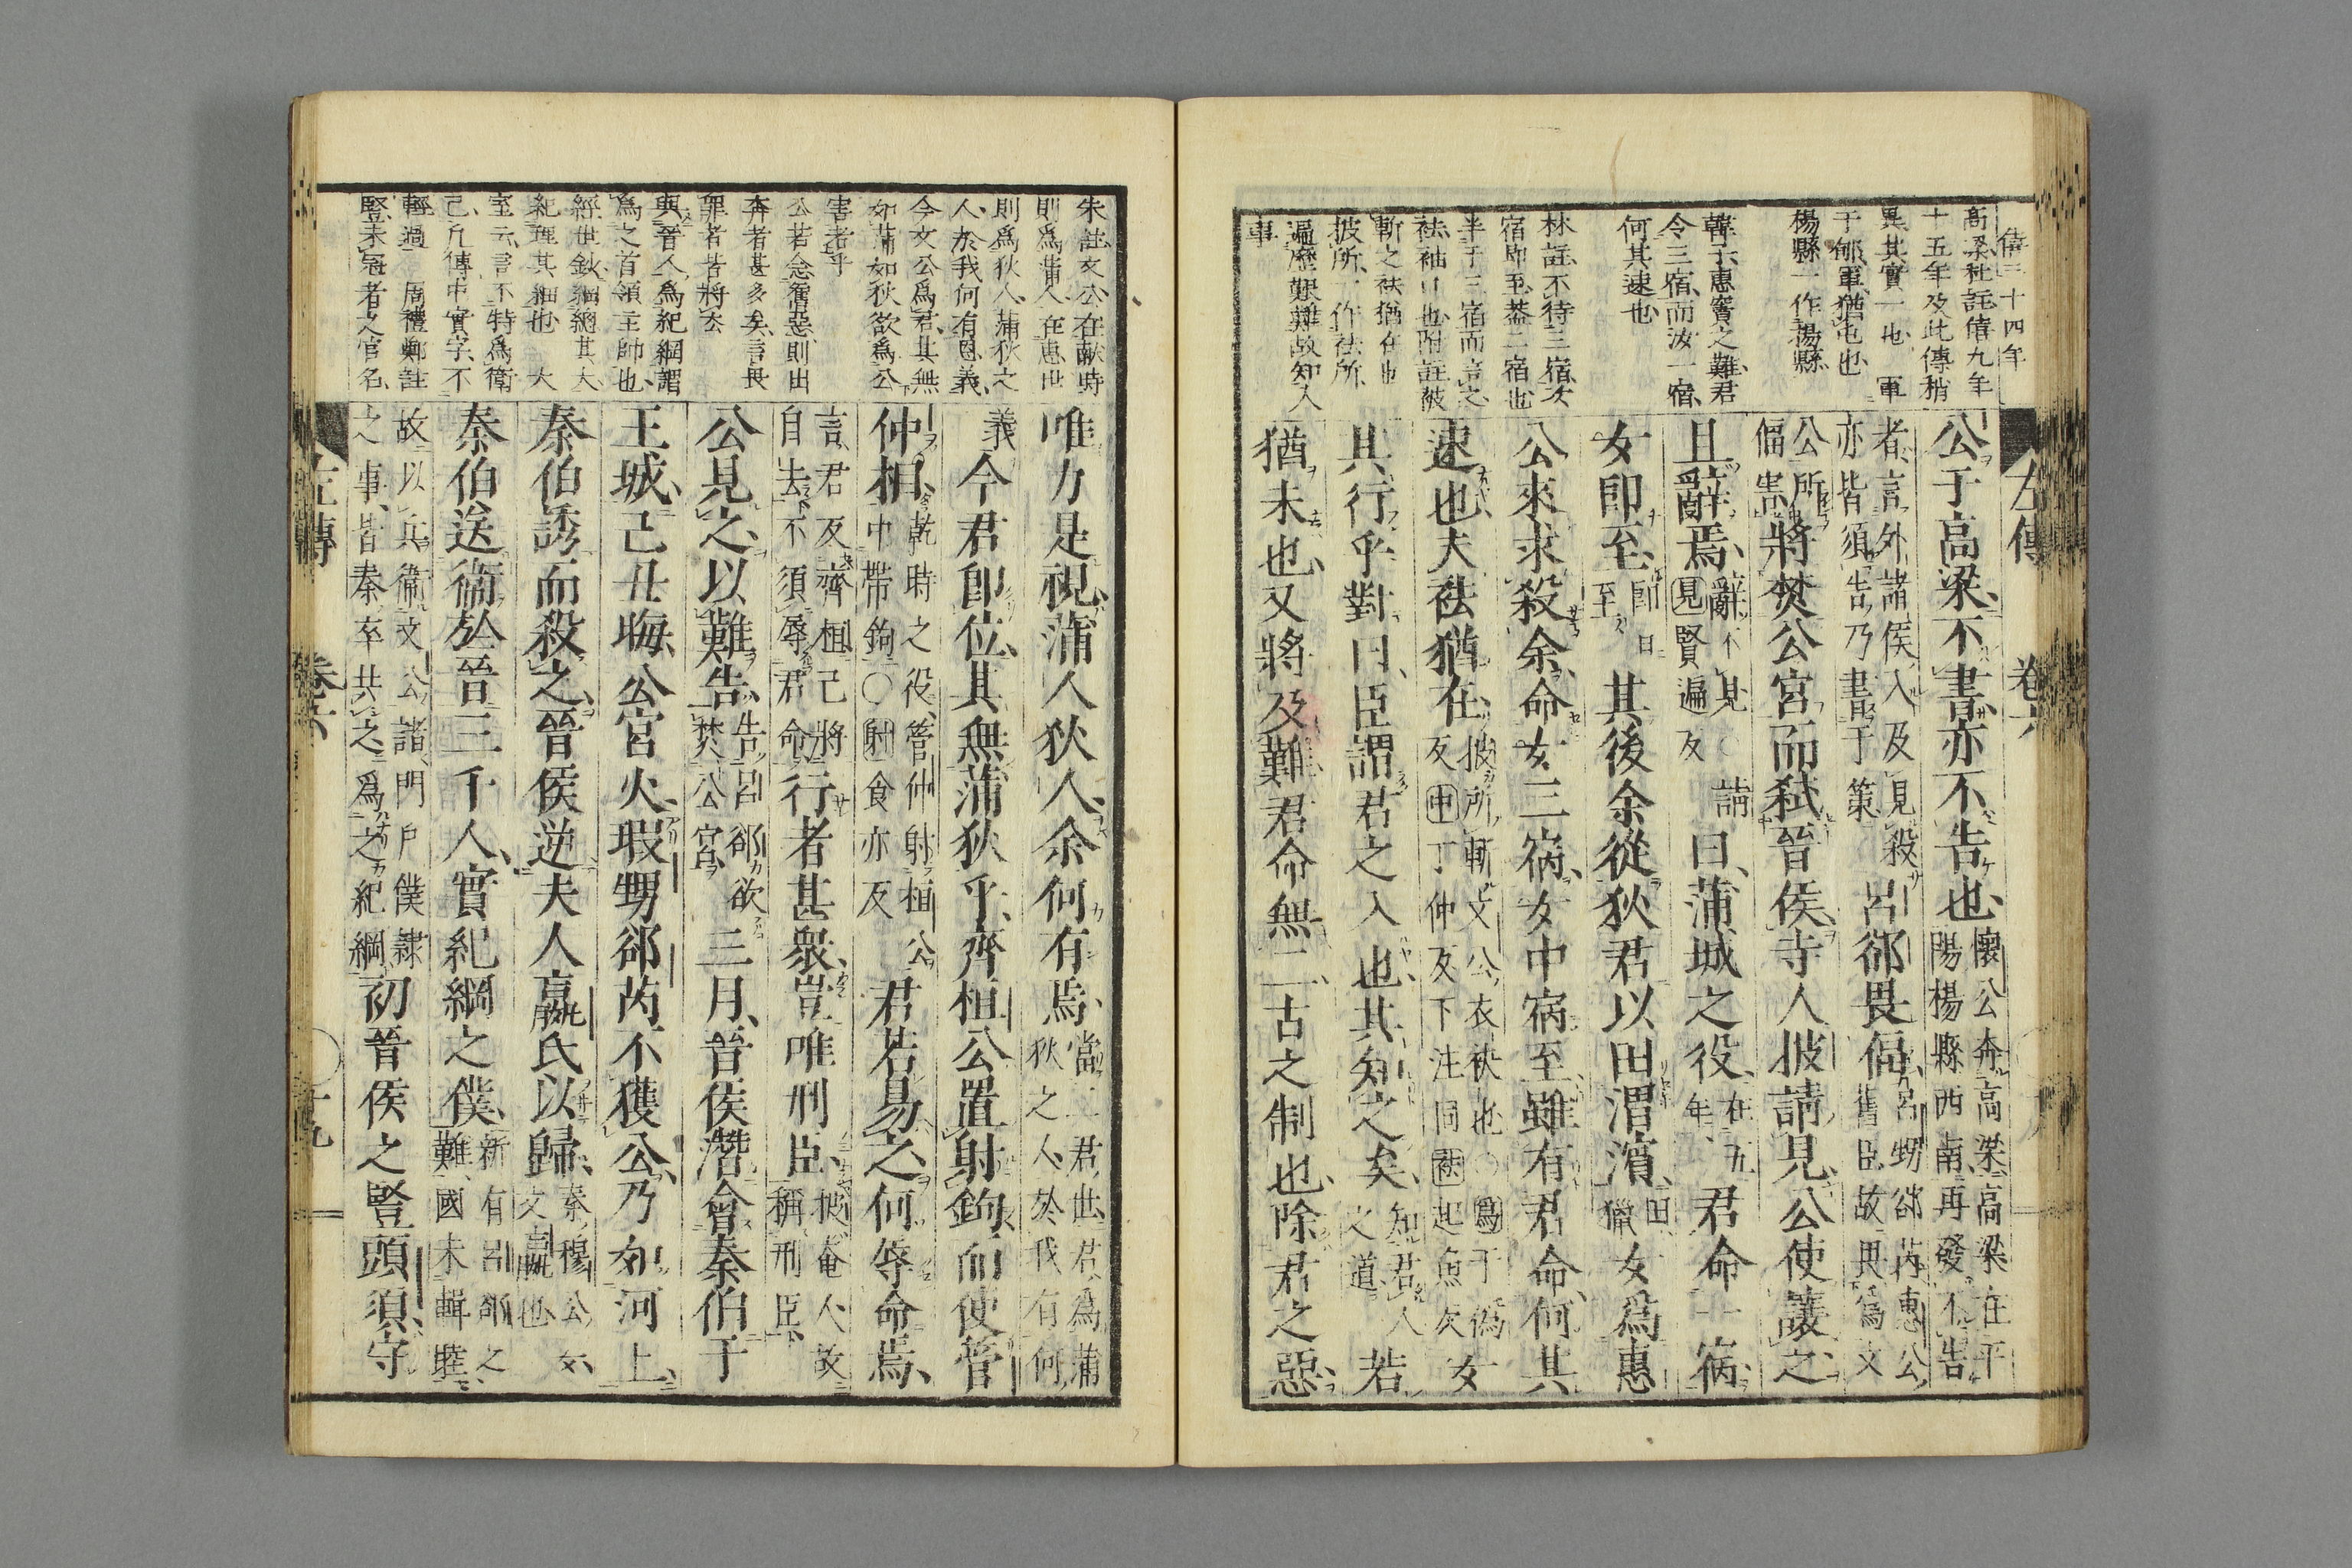 僖二十四年
高梁杜註僖九年
十五年及此傳稍
異其實一也 軍
于郇軍猶屯也
楊縣一作揚縣
韓子惠竇之難君
令三宿而汝一宿
何其速也
林註不待三宿女
宿即至蓋二宿也
半于三宿而言之
袪袖口也附註披
斬之袪猶在也
披所一作袪所
遍歷艱難故知入
事
左傳 卷六
公于高梁不書亦不告也懷公奔高梁高梁在平
陽楊縣西南再發不告
者言外諸侯入及見殺
亦皆須告乃書于策
呂郤畏偪呂甥郤芮惠公
舊臣故畏為文
公所
偪害
將焚公宮而弒晉侯寺人披請見公使讓之
且辭焉辭不見○請
見賢遍反
曰蒲城之役在五
年
君命一宿
女即至即日
至
其後余從狄君以田渭濱田
獵
女爲惠
公來求殺余命女三宿女中宿至雖有君命何其
速也夫袪猶在披所斬文公衣袂也○爲于偽
反中丁仲反下注同袪起魚次
女
其行乎對曰臣謂君之入也其知之矣知君人
之道
若
猶未也又將及難君命無二古之制也除君之惡
朱註文公在献時
則爲蒲人在惠世
則爲狄人蒲狄之
人於我何有恩義
今文公爲君其無
如蒲如狄欲爲公
害者乎
公若念舊惡則出
奔者甚多矣言畏
罪者皆將去
與晉人爲紀綱謂
爲之首領主帥也
經世鈔綱總其大
紀理其細也 大
室云言不特爲衛
己凡傳中實字不
輕過 周禮鄭註
竪未冠者之官名
唯力是視蒲人狄人余何有焉當二君世君為蒲
狄之人於我有何
義
今君即位其無蒲狄乎齊桓公置射鉤而使管
仲相乾時之役管仲射桓公
中帶鉤○射食亦反
君若易之何辱命焉
言君反齊桓己將
自去不須辱君命
行者甚衆豈唯刑臣披奄人故
稱刑臣
公見之以難告告呂郤欲
焚公宮
三月晉侯潛會秦伯于
王城己丑晦公宮火瑕甥郤芮不獲公乃如河上
秦伯誘而殺之晉侯逆夫人嬴氏以歸秦穆公女
文嬴也
秦伯送衞於晉三千人實紀綱之僕新有呂郤之
難國未輯睦
故以兵衞文公諸門戶僕隸
之事皆秦卒共之爲之紀綱
初晉侯之豎頭須守
左傳 卷六 十九